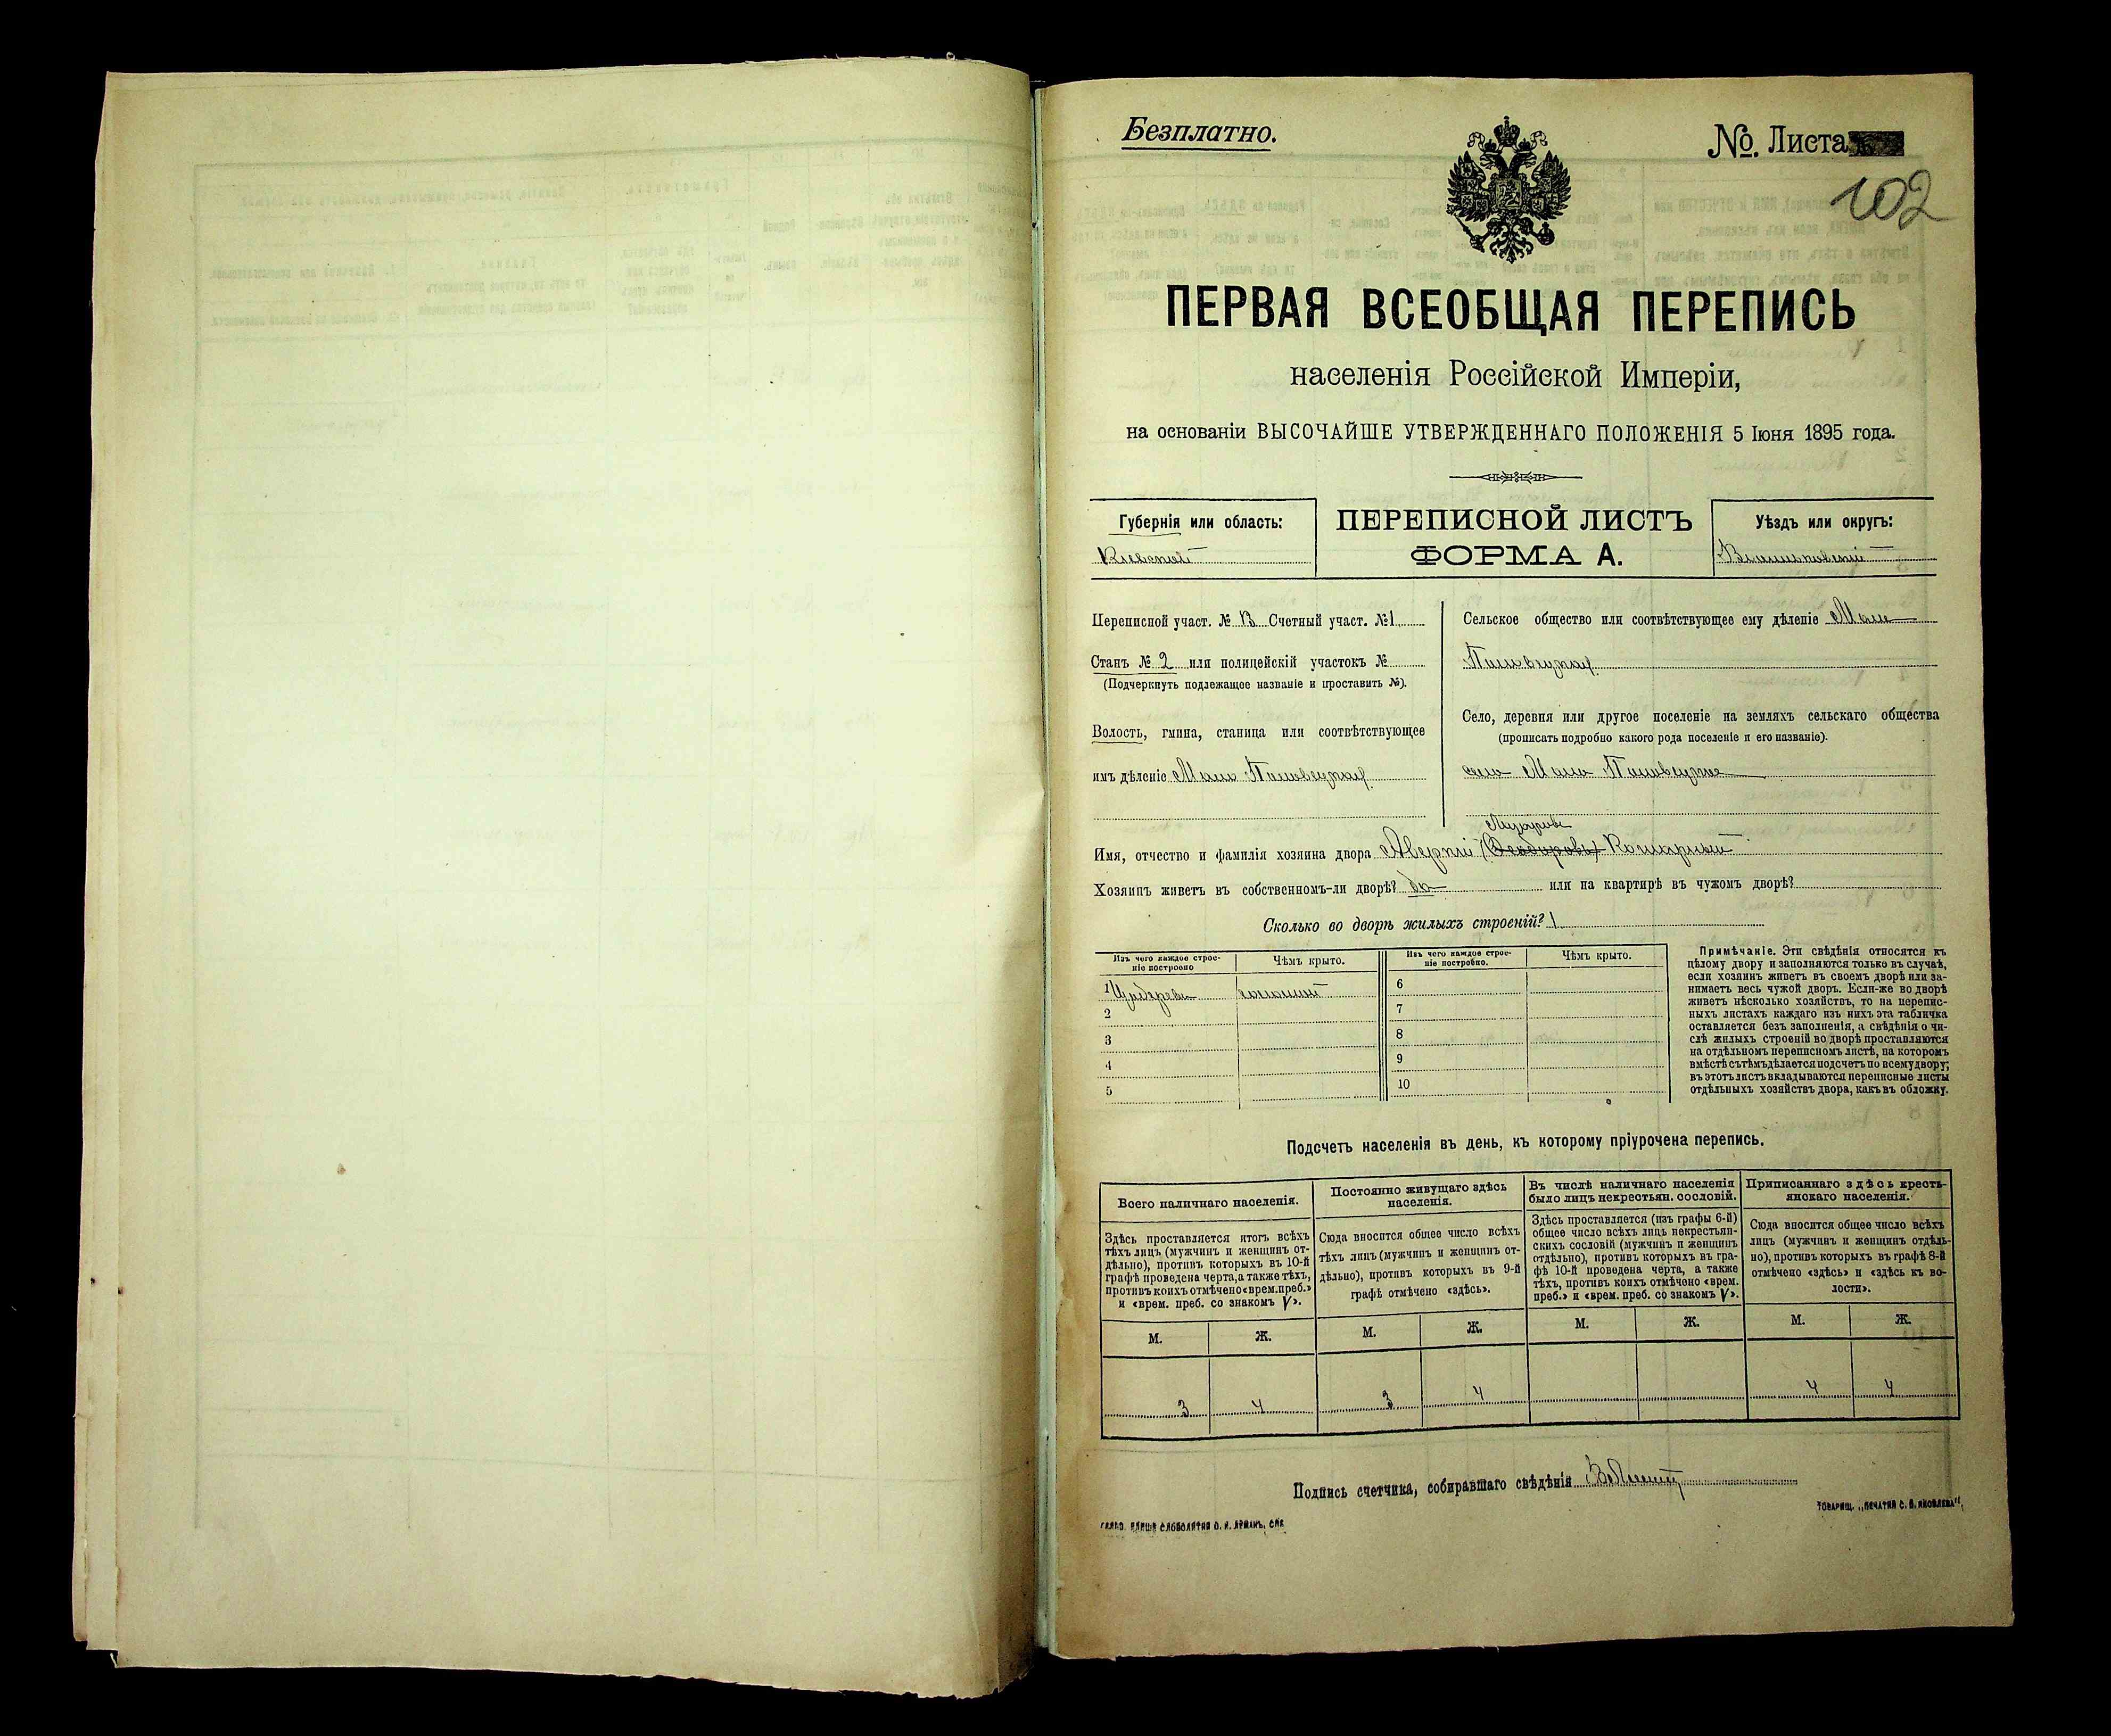 Безплатно.
№. Листа
102
ПЕРВАЯ ВСЕОБЩАЯ ПЕРЕПИСЬ
населенія Россійской Имперіи,
на основаніи ВЫСОЧАЙШЕ УТВЕРЖДЕННАГО ПОЛОЖЕНІЯ 5 Іюня 1895 года.
Губернія или область:
Кіевская
ПЕРЕПИСНОЙ ЛИСТЪ
ФОРМА А.
Уѣздъ или округъ:
Переписной участ. № 13 Счетный участ. № 1
Станъ № 2 или полицейскій участокъ №
(Подчеркнуть подлежащее названіе и проставить №).
Волость, гмина, станица или соотвѣтствующее
имъ дѣленіе Мало Половецкая
Сельское общество или соотвѣтствующее ему дѣленіе Мало
Половецкая
Село, деревня или другое поселеніе на земляхъ сельскаго общества
(прописать подробно какого рода поселеніе и его названіе).
село Мало Половецкое
Имя, отчество и фамилія хозяина двора Аверкій
Хозяинъ живетъ въ собственномъ-ли дворѣ? да или на квартирѣ въ чужомъ дворѣ?
Сколько во дворѣ жилыхъ строеній? 1
Изъ чего каждое строе-
ніе построено
Чѣмъ крыто.
Изъ чего каждое строе-
ніе построено.
Чѣмъ крыто.
1 Изъ дерева соломой
2
3
4
5
6
7
8
9
10
Примѣчаніе. Эти свѣдѣнія относятся къ
цѣлому двору и заполняются только въ случаѣ,
если хозяинъ живетъ въ своемъ дворѣ или за-
нимаетъ весь чужой дворъ. Если-же во дворѣ
живетъ нѣсколько хозяйствъ, то на перепис-
ныхъ листахъ каждаго изъ нихъ эта табличка
оставляется безъ заполненія, а свѣдѣнія о чи-
слѣ жилыхъ строеній во дворѣ проставляются
на отдѣльномъ переписномъ листѣ, на которомъ
вмѣстѣ съ тѣмъ дѣлается подсчетъ по всему двору;
въ этотъ листъ вкладываются переписные листы
отдѣльныхъ хозяйствъ двора, какъ въ обложку.
Подсчетъ населенія въ день, къ которому пріурочена перепись.
Всего наличнаго населенія.
Здѣсь проставляется итогъ всѣхъ
тѣхъ лицъ (мужчинъ и женщинъ от-
дѣльно), противъ которыхъ въ 10-й
графѣ проведена черта, а также тѣхъ,
противъ коихъ отмѣчено «врем. преб.»
и «врем. преб. со знакомъ V».
Постоянно живущаго здѣсь
населенія.
Сюда вносится общее число всѣхъ
тѣхъ лицъ (мужчинъ и женщинъ от-
дѣльно), противъ которыхъ въ 9-й
графѣ отмѣчено «здѣсь».
Въ числѣ наличнаго населенія
было лицъ некрестьян. сословій.
Здѣсь проставляется (изъ графы 6-й)
общее число всѣхъ лицъ некрестьян-
скихъ сословій (мужчинъ и женщинъ
отдѣльно), противъ которыхъ въ гра-
фѣ 10-й проведена черта, а также
тѣхъ, противъ коихъ отмѣчено «врем.
преб.» и «врем. преб. со знакомъ V».
Приписаннаго здѣсь кресть-
янскаго населенія.
Сюда вносится общее число всѣхъ
лицъ (мужчинъ и женщинъ отдѣль-
но), противъ которыхъ въ графѣ 8-й
отмѣчено «здѣсь» и «здѣсь къ во-
лости».
М. Ж. М. Ж. М. Ж. М. Ж.
3 4 3 4 4 4
Подпись счетчика, собиравшаго свѣдѣнія
ТОВАРИЩ. „ПЕЧАТНЯ С. П. ЯКОВЛЕВА".